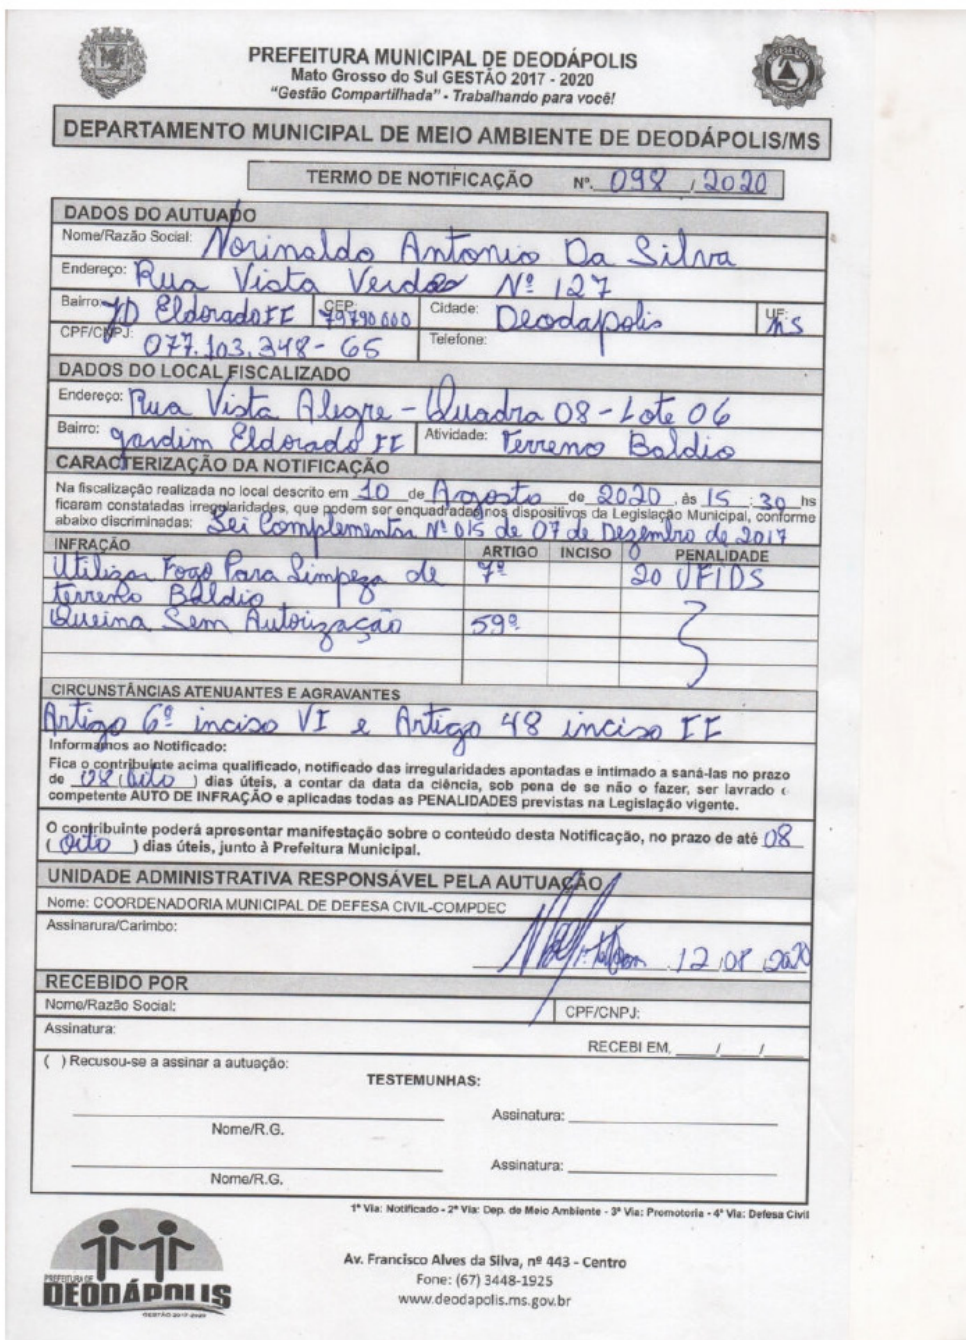 PREFEITURA MUNICIPAL DE DEODÁPOLIS
Mato Grosso do Sul GESTÃO 2017 - 2020
"Gestão Compartilhada" - Trabalhando para você!
DEPARTAMENTO MUNICIPAL DE MEIO AMBIENTE DE DEODÁPOLIS/MS
TERMO DE NOTIFICAÇÃO Nº. 098 / 2020
DADOS DO AUTUADO
Nome/Razão Social: Norinaldo Antonio Da Silva
Endereço: Rua Vista Verdes Nº 127
Bairro: JD Eldorado II CEP: 79790 000 Cidade: Deodapolis UF: MS
CPF/CNPJ: 077.103.348-65 Telefone:
DADOS DO LOCAL FISCALIZADO
Endereço: Rua Vista Alegre - Quadra 08 - Lote 06
Bairro: Jardim Eldorado II Atividade: Terreno Baldio
CARACTERIZAÇÃO DA NOTIFICAÇÃO
Na fiscalização realizada no local descrito em 10 de Agosto de 2020 às 15 : 30 hs
ficaram constatadas irregularidades, que podem ser enquadradas nos dispositivos da Legislação Municipal, conforme
abaixo discriminadas: Lei Complementar Nº 015 de 07 de Dezembro de 2017
INFRAÇÃO ARTIGO INCISO PENALIDADE
Utilizar Fogo Para Limpeza de 7º 20 UFIDS
terreno Baldio
Queima Sem Autorização 59º
CIRCUNSTÂNCIAS ATENUANTES E AGRAVANTES
Artigo 6º inciso VI e Artigo 48 inciso II
Informamos ao Notificado:
Fica o contribuinte acima qualificado, notificado das irregularidades apontadas e intimado a saná-las no prazo
de 08 (oito) dias úteis, a contar da data da ciência, sob pena de se não o fazer, ser lavrado o
competente AUTO DE INFRAÇÃO e aplicadas todas as PENALIDADES previstas na Legislação vigente.
O contribuinte poderá apresentar manifestação sobre o conteúdo desta Notificação, no prazo de até 08
(oito) dias úteis, junto à Prefeitura Municipal.
UNIDADE ADMINISTRATIVA RESPONSÁVEL PELA AUTUAÇÃO
Nome: COORDENADORIA MUNICIPAL DE DEFESA CIVIL-COMPDEC
Assinarura/Carimbo:
12/08/2020
RECEBIDO POR
Nome/Razão Social: CPF/CNPJ:
Assinatura:
RECEBI EM, / /
( ) Recusou-se a assinar a autuação:
TESTEMUNHAS:
Assinatura:
Nome/R.G.
Assinatura:
Nome/R.G.
1ª Via: Notificado - 2ª Via: Dep. de Meio Ambiente - 3ª Via: Promotoria - 4ª Via: Defesa Civil
PREFEITURA DE
DEODÁPOLIS
GESTÃO 2017-2020
Av. Francisco Alves da Silva, nº 443 - Centro
Fone: (67) 3448-1925
www.deodapolis.ms.gov.br